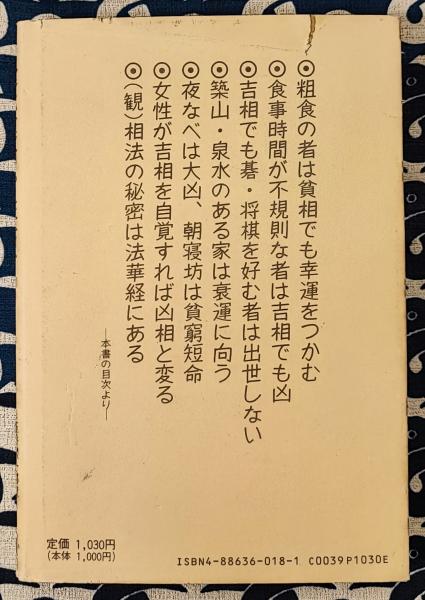 ◉粗食の者は貧相でも幸運をつかむ
◉食事時間が不規則な者は吉相でも凶
◉吉相でも碁・将棋を好む者は出世しない
◉築山・泉水のある家は衰運に向う
◉夜なべは大凶、朝寝坊は貧窮短命
◉女性が吉相を自覚すれば凶相と変る
◉(観)相法の秘密は法華経にある
―本書の目次より―
定価 1,030円
(本体 1,000円)
ISBN4-88636-018-1 C0039 P1030E